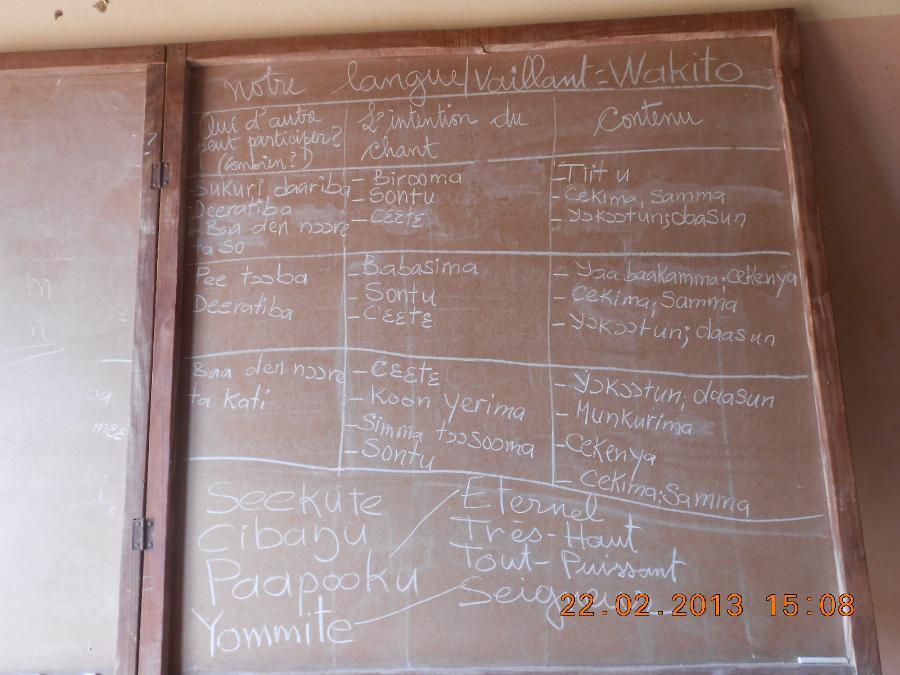 notre langue/Vaillant = Wakito
Qui d'autre peut participer? (Combien?)
L'intention du chant
Contenu
Sukuri daariba
Deeratiba
- Baa den nɔɔrɛ
ta so
- Birooma
- Sontu
- CɛɛtƐ
- Tiitu
- Cekima, Samma
- Yɔkɔɔtun; daasun
Pee tɔɔba
Deeratiba
- Babasima
- Sontu
- Cɛɛtɛ
- Yaa baakamma; cekenya
- Cekima; Samma
- Yɔkɔɔtun; daasun
Baa den nɔɔrɛ
ta kati
- Cɛɛtɛ
- Koon yerima
- Simma tɔɔsooma
- Sontu
- Yɔkɔɔtun; daasun
- Munkurima
- Cekenya
- Cekima; Samma
Seekute
Cibaŋu
Paapooku
Yommite
Eternel
Très-Haut
Tout-Puissant
22.02.2013 15:08